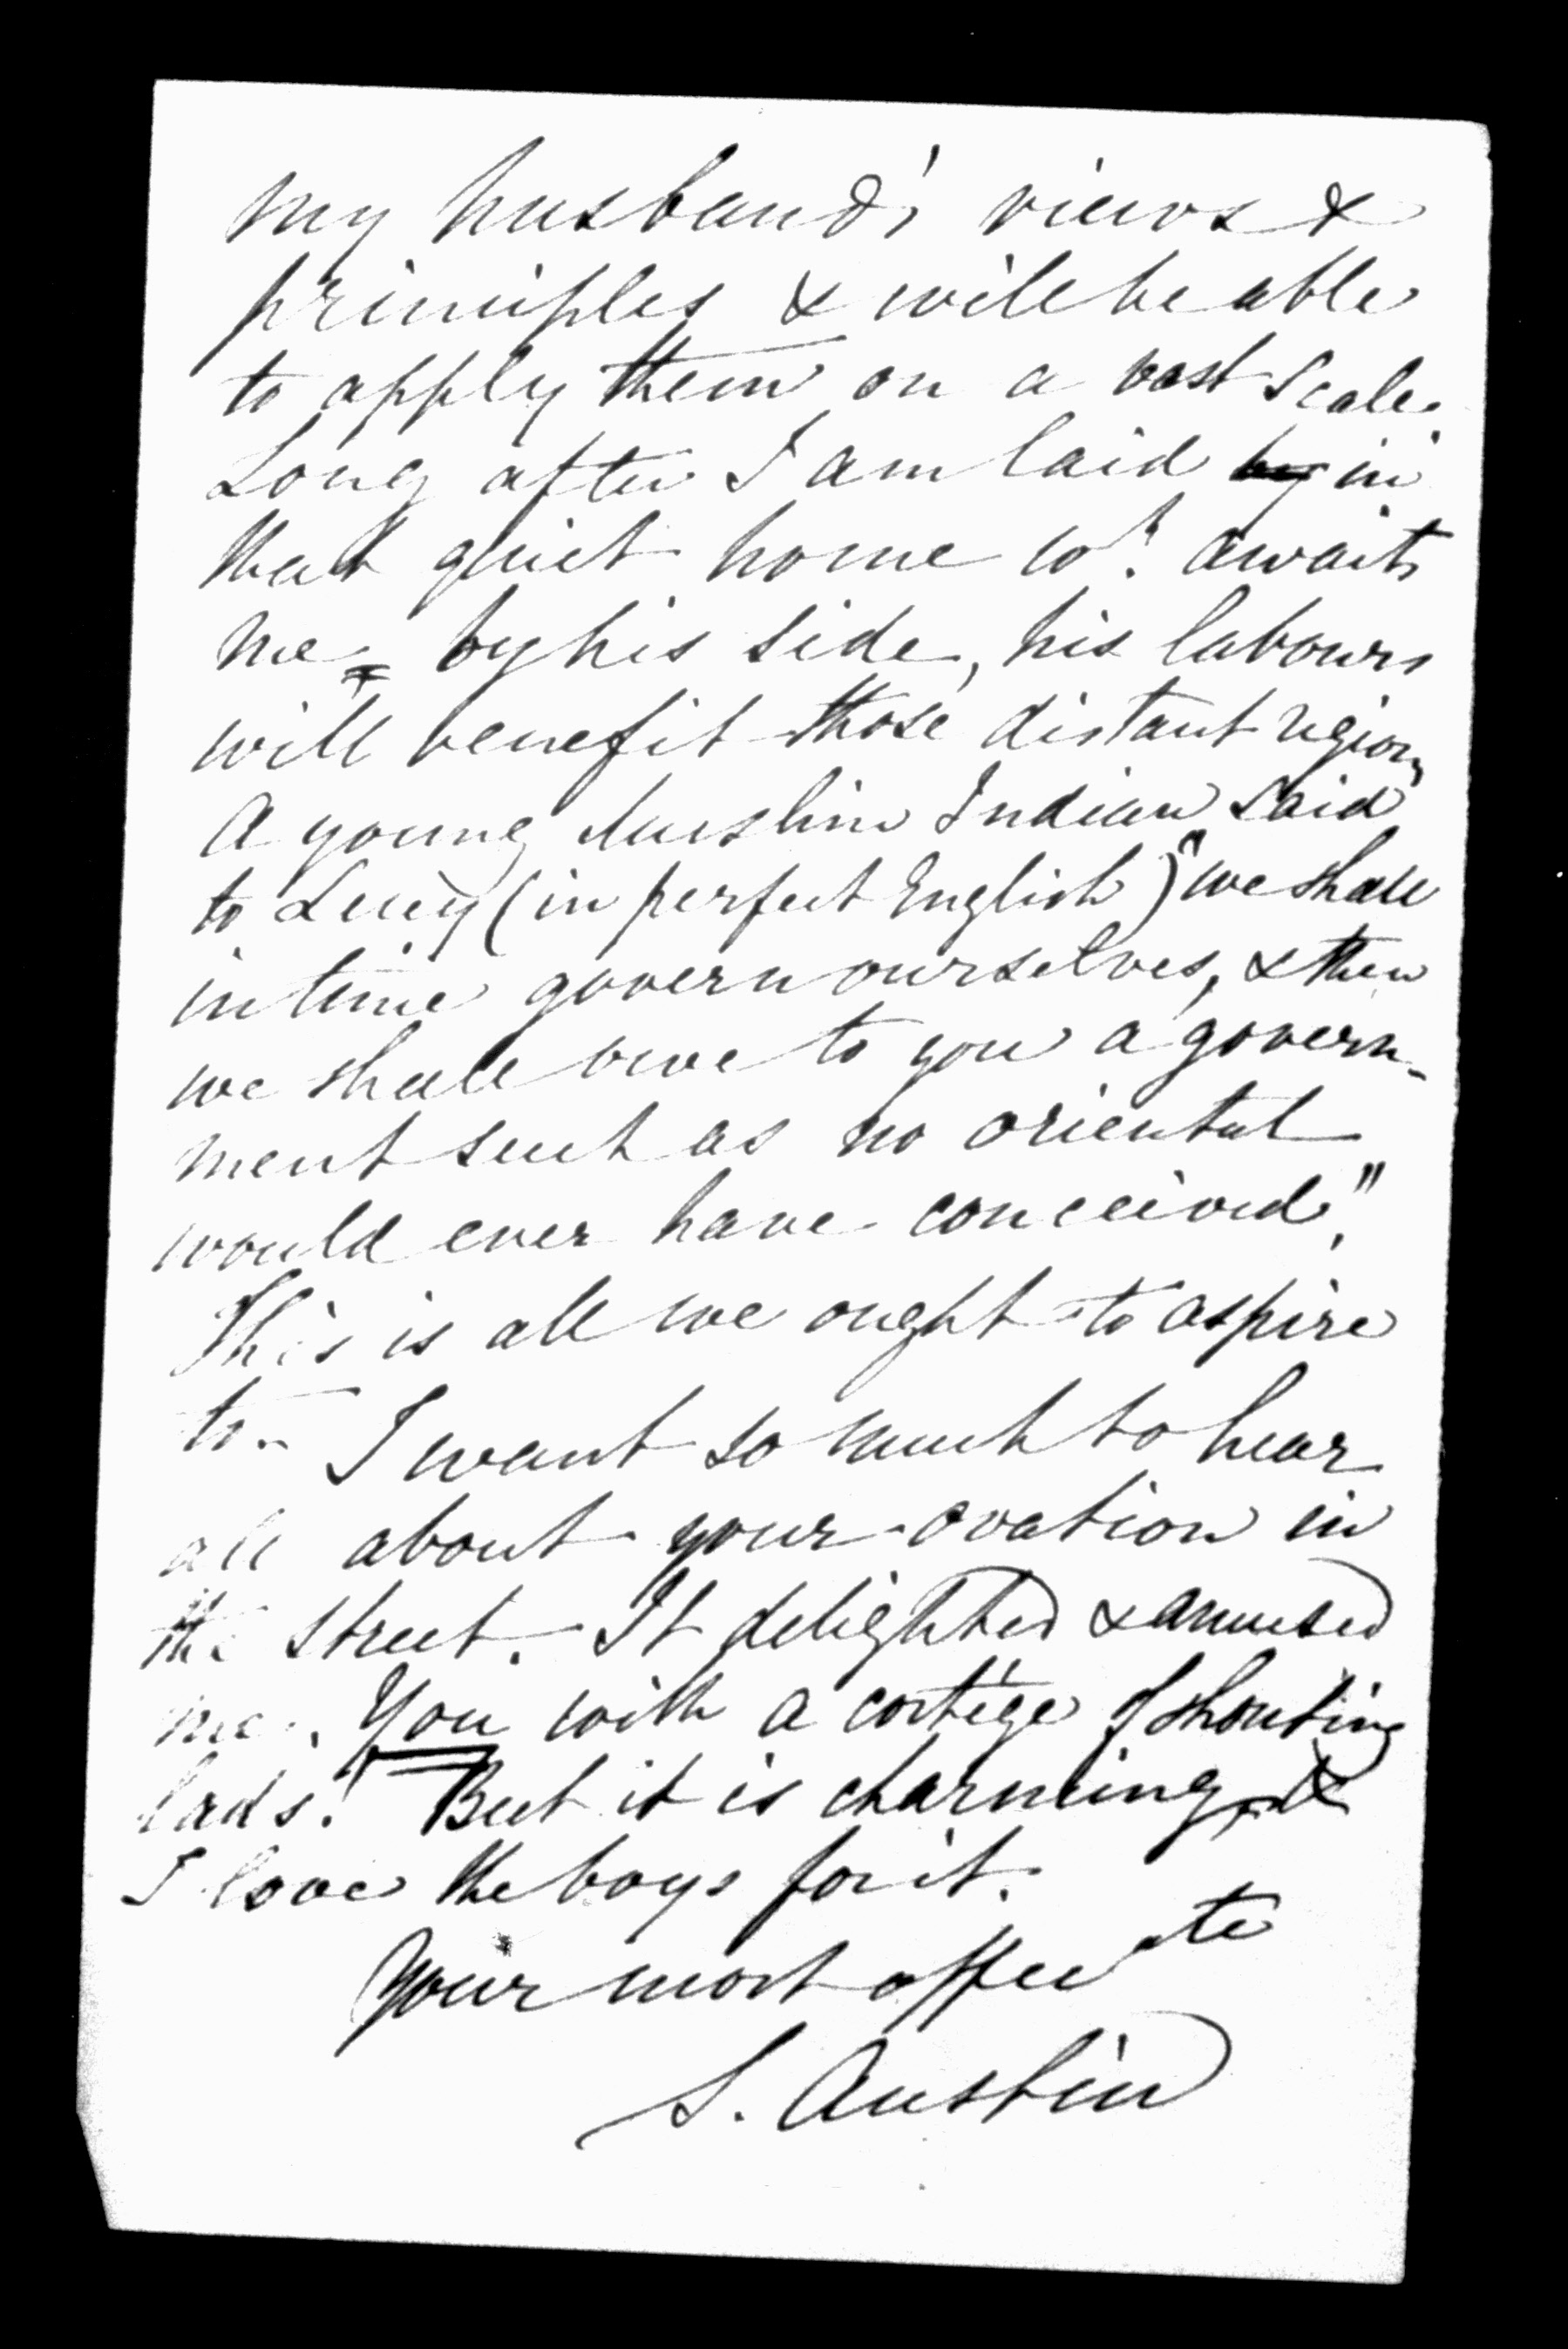 my husband's views &
principles & will be able
to apply them on a vast scale.
Long after I am laid in
that quiet home wh. awaits
me by his side, his labours
will benefit those distant regions
A young Muslim Indian said
to Lucy (in perfect English) "we shall
in time govern ourselves, & then
we shall owe to you a govern-
ment such as no oriental
would ever have conceived."
This is all we ought to aspire
to. I want so much to hear
all about your ovation in
the street. It delighted & amused
me. You with a cortége of shouting
lads! But it is charming, &
I love the boys for it.
Your most affecate
S. Austin